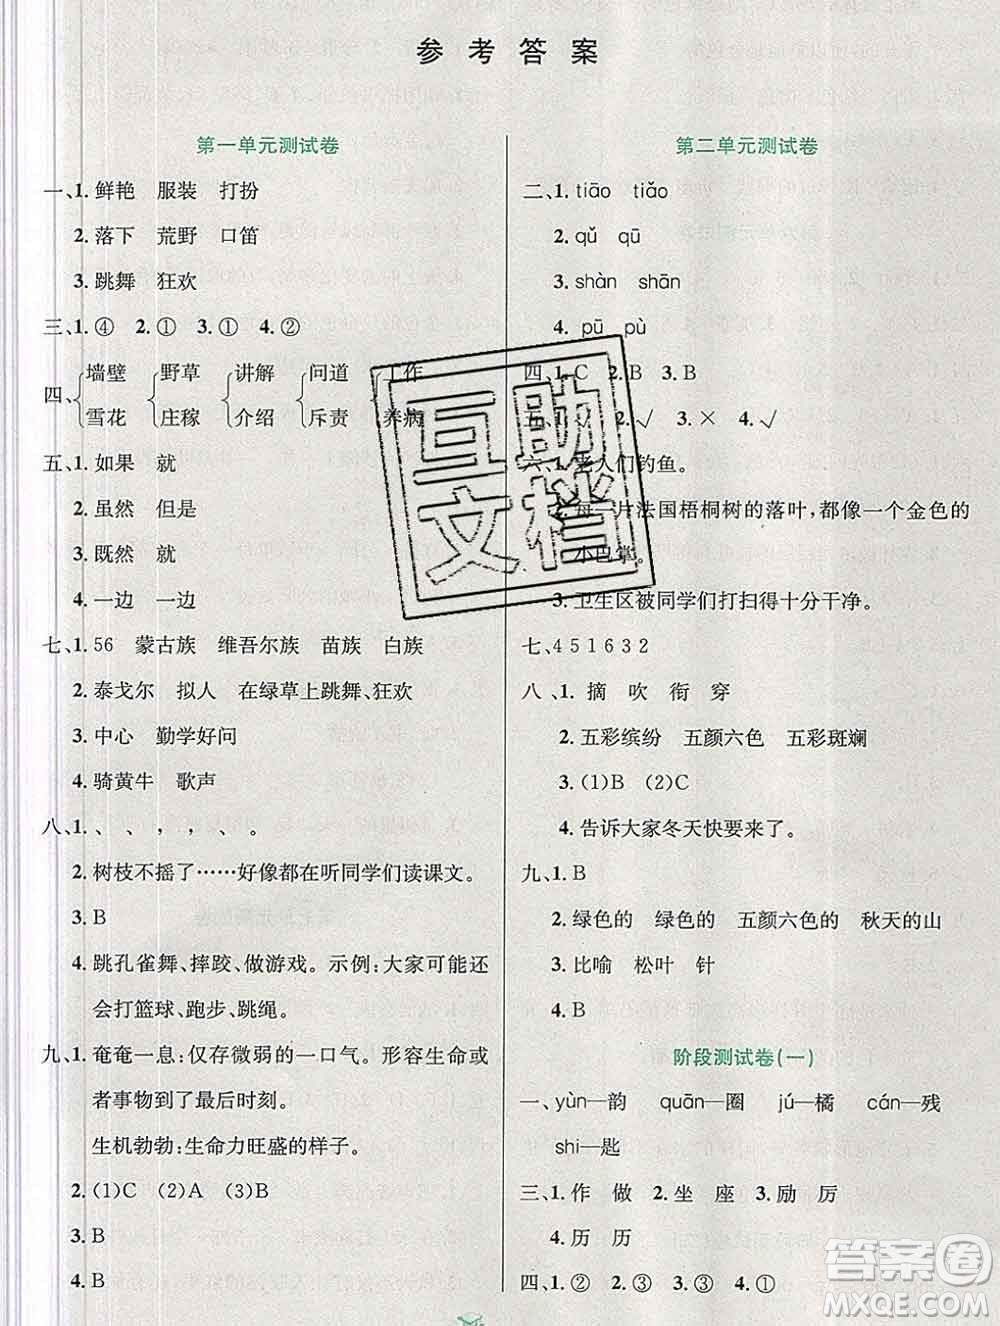 参考答案
第一单元测试卷
一、1. 鲜艳 服装 打扮
2. 落下 荒野 口笛
3. 跳舞 狂欢
三、1. ④ 2. ① 3. ① 4. ②
四、
墙壁 野草 讲解 问道 工作
雪花 庄稼 介绍 斥责 养病
五、1. 如果 就
2. 虽然 但是
3. 既然 就
4. 一边 一边
七、1. 56 蒙古族 维吾尔族 苗族 白族
2. 泰戈尔 拟人 在绿草上跳舞、狂欢
3. 中心 勤学好问
4. 骑黄牛 歌声
八、1. 、 、 , , 、 。
2. 树枝不摇了……好像都在听同学们读课文。
3. B
4. 跳孔雀舞、摔跤、做游戏。示例:大家可能还
会打篮球、跑步、跳绳。
九、1. 奄奄一息:仅存微弱的一口气。形容生命或
者事物到了最后时刻。
生机勃勃:生命力旺盛的样子。
2. (1)C (2)A (3)B
3. B
4. B
第二单元测试卷
二、1. tiāo tiǎo
2. qǔ qū
3. shàn shān
4. pū pù
四、1. C 2. B 3. B
五、1. √ 2. √ 3. × 4. √
六、1. 老人们钓鱼。
2. 每一片法国梧桐树的落叶,都像一个金色的
小巴掌。
3. 卫生区被同学们打扫得十分干净。
七、4 5 1 6 3 2
八、1. 摘 吹 衔 穿
2. 五彩缤纷 五颜六色 五彩斑斓
3. (1)B (2)C
4. 告诉大家冬天快要来了。
九、1. B
2. 绿色的 绿色的 五颜六色的 秋天的山
3. 比喻 松叶 针
4. B
阶段测试卷(一)
一、yùn—韵 quān—圈 jú—橘 cán—残
shi—匙
三、1. 作 做 2. 坐 座 3. 励 厉
4. 历 历
四、1. ② 2. ③ 3. ③ 4. ①
互助
文档
答案圈
MXQE.COM